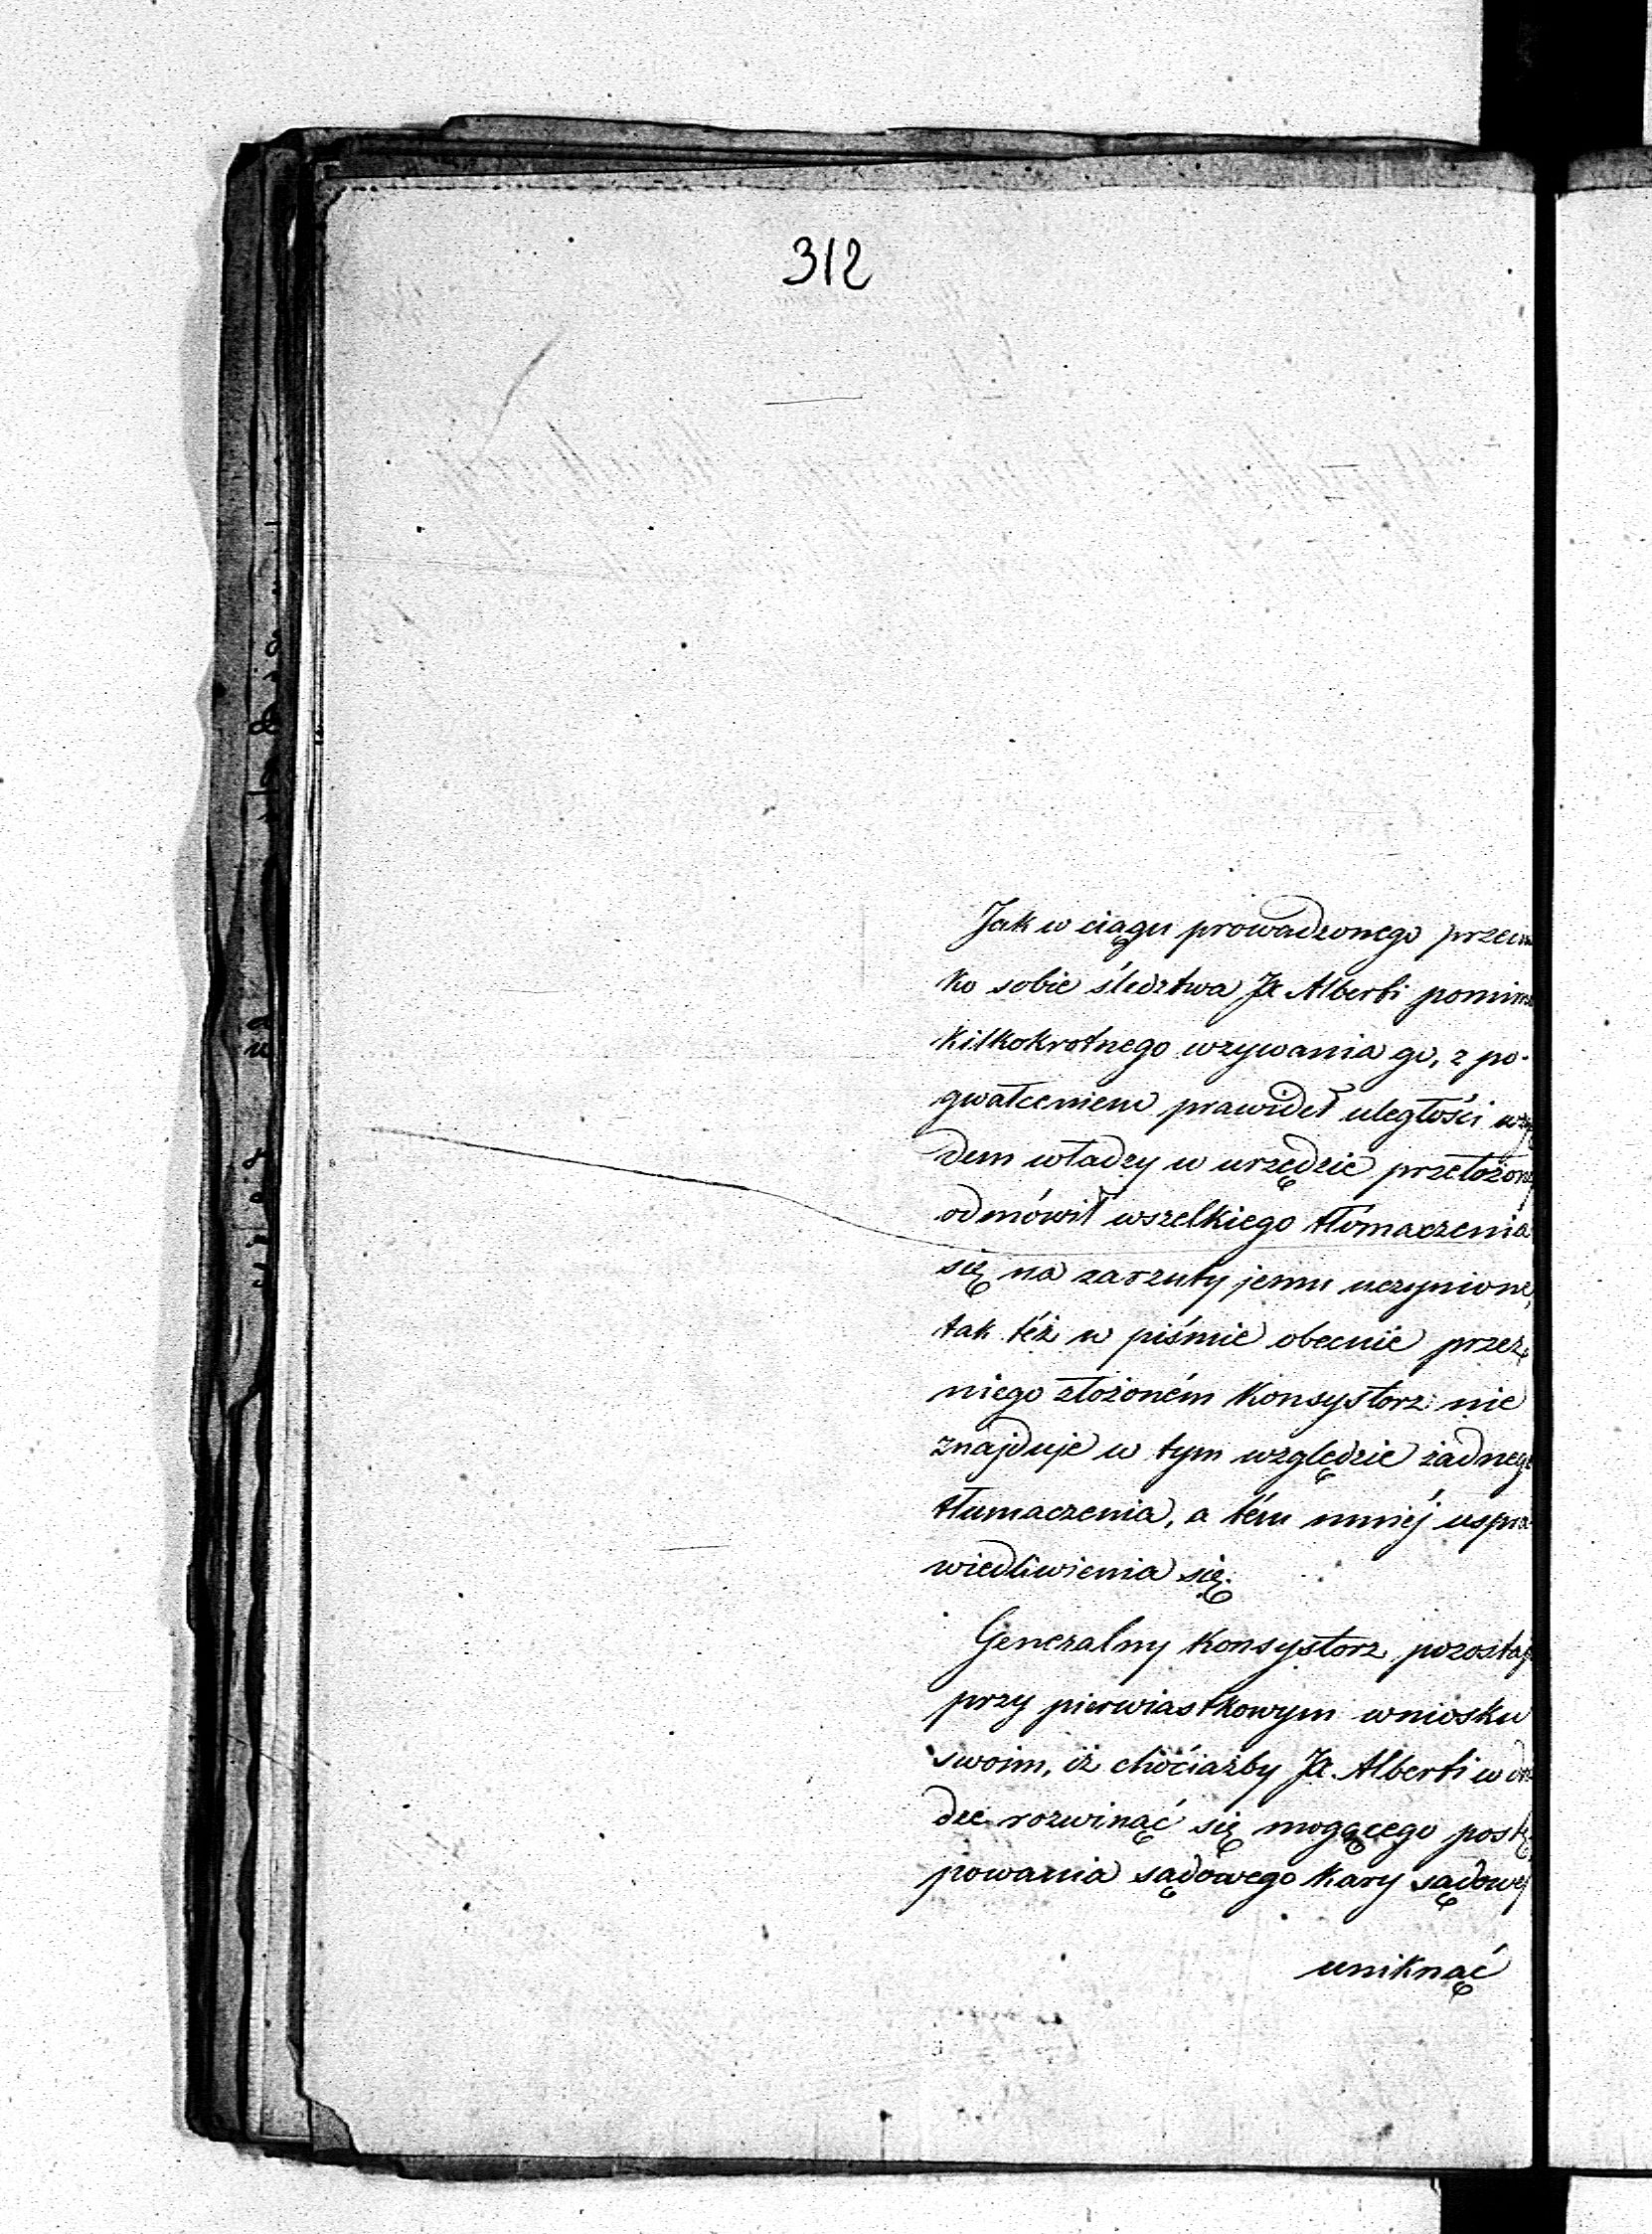 312
Jak w ciągu prowadzonego przeciw
ko sobie śledztwa Alberti pomimo
kilkokrotnego wzywania go, z po-
gwałceniem prawideł uległości wzglę
dem władzy w urzędzie przełożonej
odmówił wszelkiego tłómaczenia
się na zarzuty jemu uczynione,
tak téż w piśmie obecnie przez
niego złożoném Konsystorz nie
znajduje w tym względzie żadnego
tłumaczenia, a tém mniéj uspra-
wiedliwienia się.
Generalny Konsystorz pozostaje
przy pierwiastkowym wniosku
swoim, iż chociażby Alberti w dro
dze rozwinąć się mogącego postę
powania sądowego kary sądowej
uniknąć